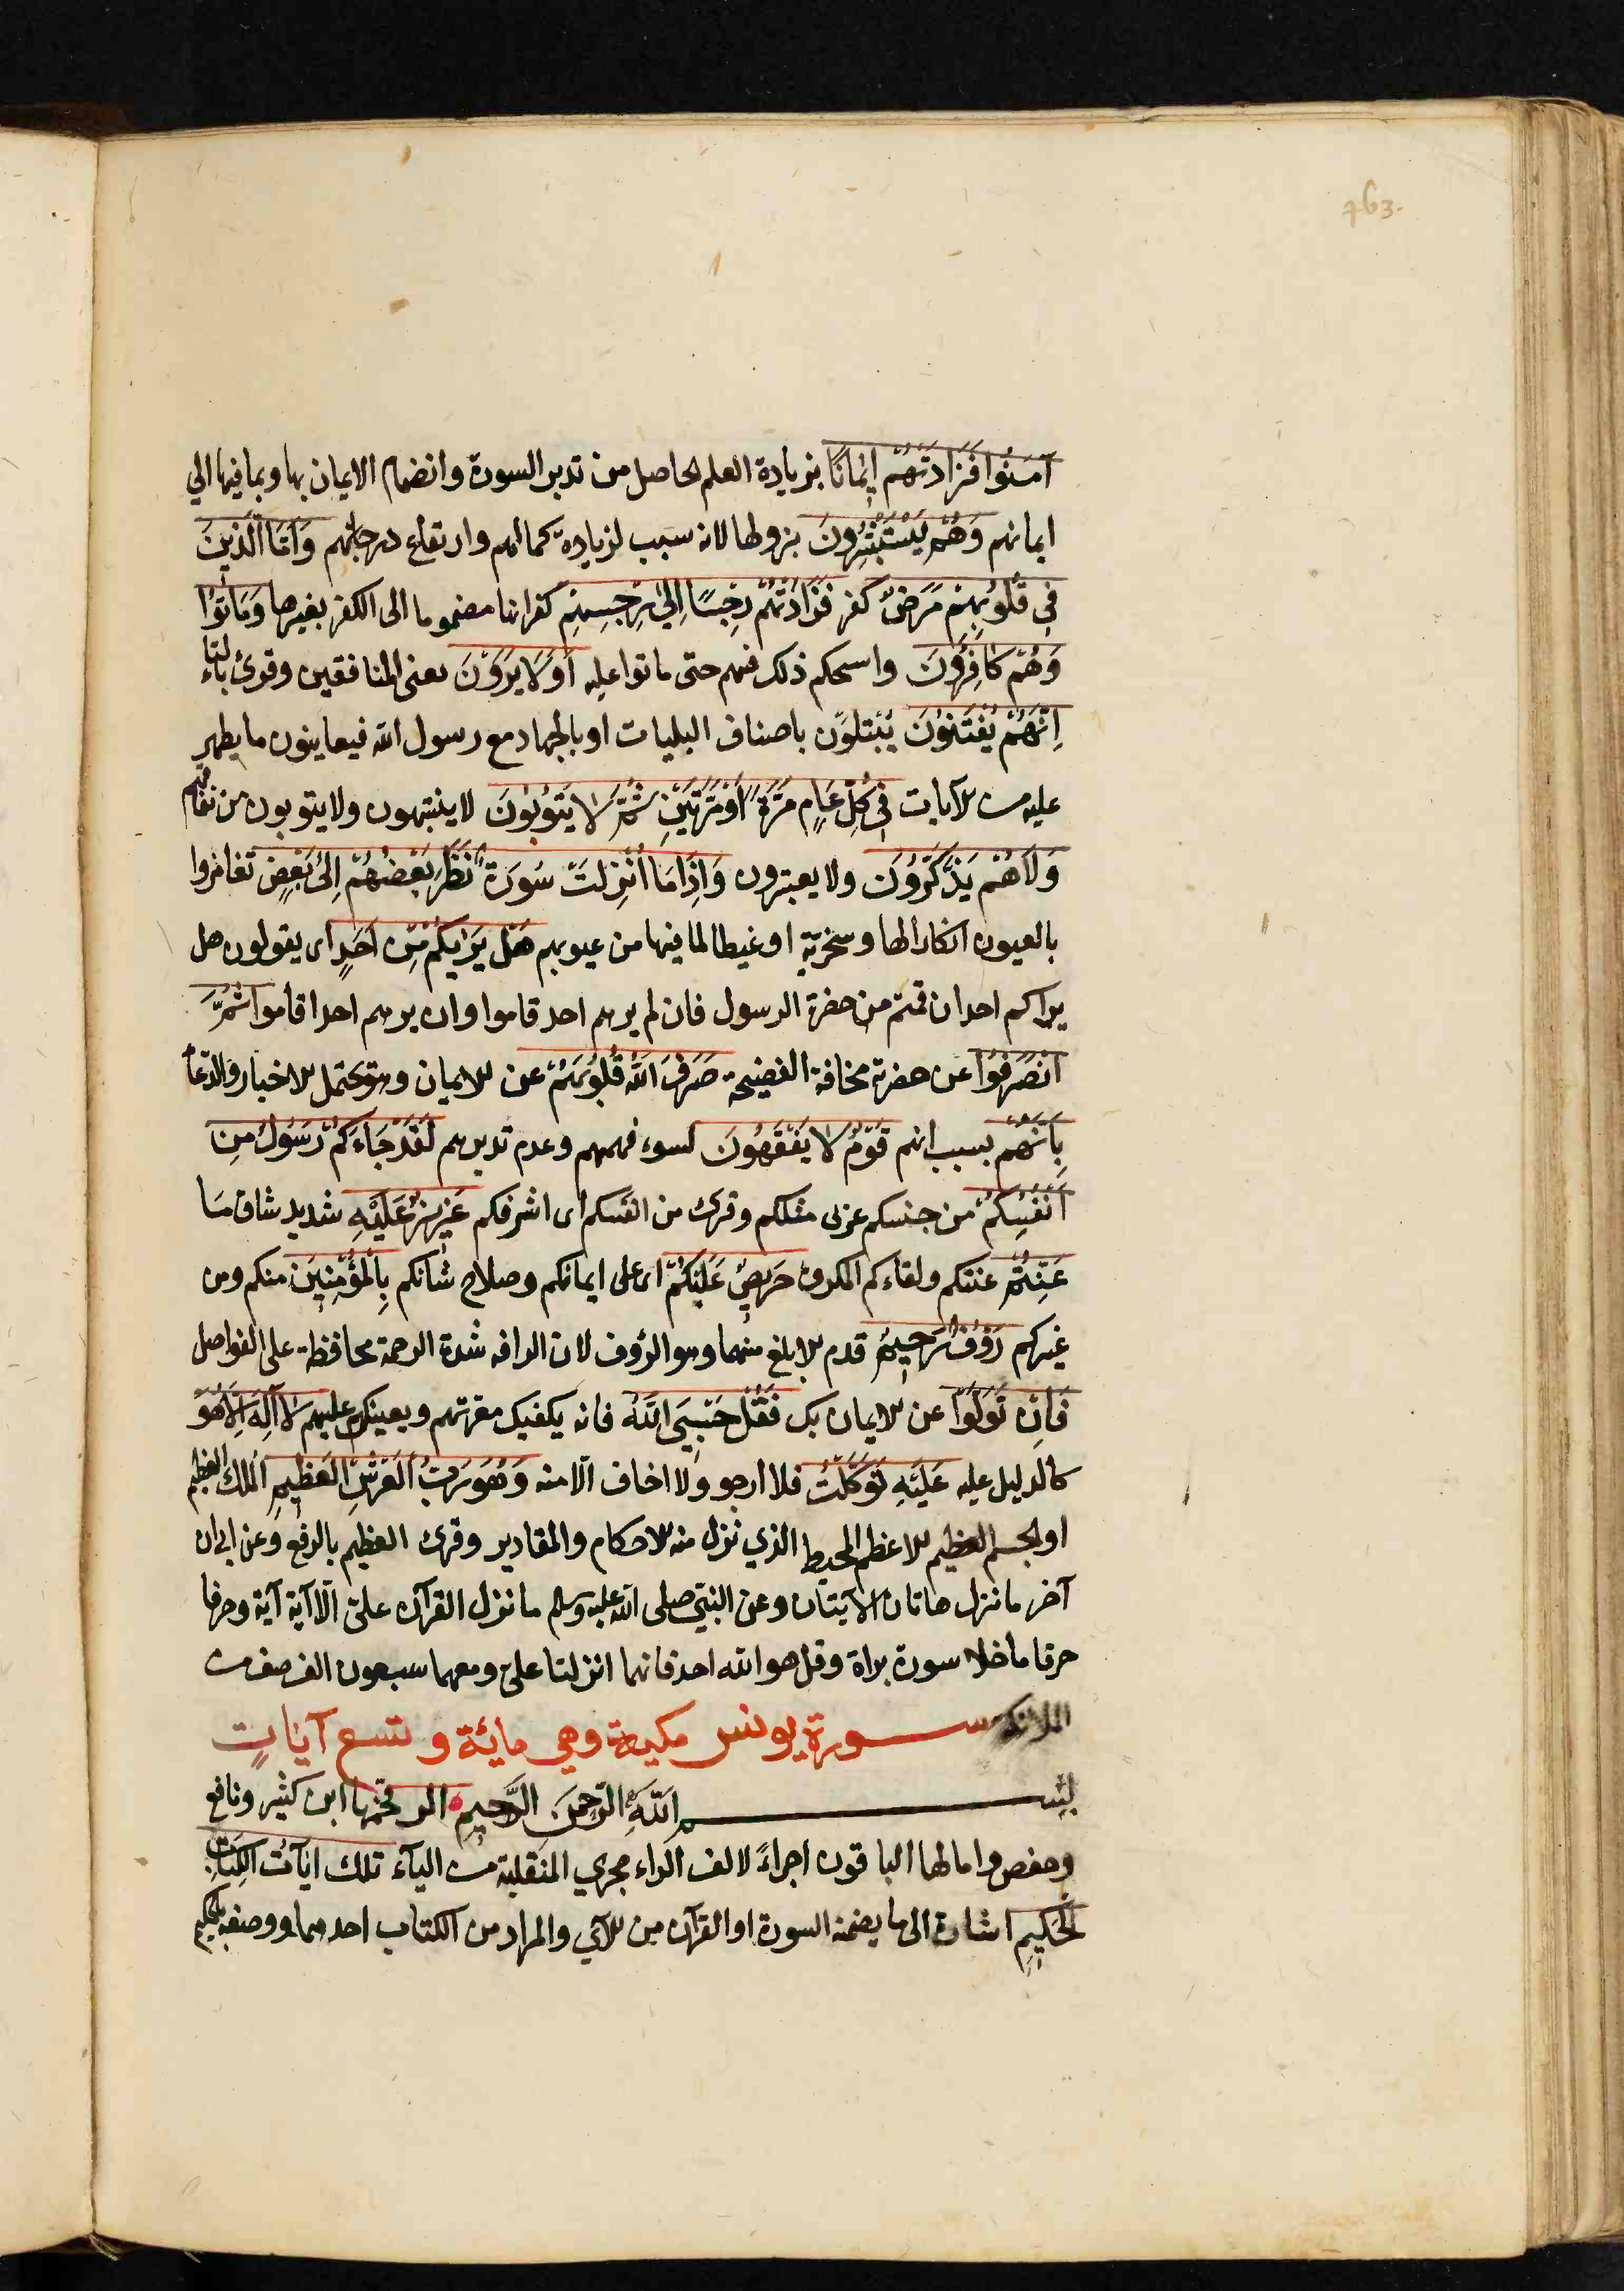 763.
آمَنُوا فَزَادَتْهُمْ إِيمَانًا بزيادة العلم الحاصل من تدبر السورة وانضمام الايمان بها وبما فيها الي
ايمانهم وَهُمْ يَسْتَبْشِرُونَ بنزولها لانه سبب لزيادة كمالهم وارتفاع درجاتهم وَأَمَّا الَّذِينَ
فِي قُلُوبِهِمْ مَرَضٌ كفر فَزَادَتْهُمْ رِجْسًا إِلَىٰ رِجْسِهِمْ كفرا بها مضموما الى الكفر بغيرها وَمَاتُوا
وَهُمْ كَافِرُونَ واستحكم ذلك فيهم حتى ماتوا عليه أَوَلَا يَرَوْنَ يعنى المنافقين وقرئ بالتاء
إِنَّهُمْ يُفْتَنُونَ يُبْتَلَوْن باصناف البليات او بالجهاد مع رسول الله فيعاينون ما يظهر
عليه من الآيات فِي كُلِّ عَامٍ مَرَّةً أَوْ مَرَّتَيْنِ ثُمَّ لَا يَتُوبُونَ لا ينتبهون ولا يتوبون من نفاقهم
وَلَا هُمْ يَذَّكَّرُونَ ولا يعتبرون وَإِذَا مَا أُنْزِلَتْ سُورَةٌ نَظَرَ بَعْضُهُمْ إِلَىٰ بَعْضٍ تغامزوا
بالعيون انكارا لها وسخرية او غيظا لما فيها من عيوبهم هَلْ يَرَاكُمْ مِنْ أَحَدٍ اى يقولون هل
يراكم احد ان قمتم من حضرة الرسول فان لم يرهم احد قاموا وان يرهم احد اقاموا ثُمَّ
انْصَرَفُوا عن حضرته مخافة الفضيحة صَرَفَ اللَّهُ قُلُوبَهُمْ عن الايمان وهو يحتمل الاخبار والدعاء
بِأَنَّهُمْ بسبب انهم قَوْمٌ لَا يَفْقَهُونَ لسوء فهمهم وعدم تدبرهم لَقَدْ جَاءَكُمْ رَسُولٌ مِنْ
أَنْفُسِكُمْ من جنسكم عربى مثلكم وقرئ من انفسكم اى اشرفكم عَزِيزٌ عَلَيْهِ شديد شاق مَا
عَنِتُّمْ عنتكم ولقاءكم المكروه حَرِيصٌ عَلَيْكُمْ اى على ايمانكم وصلاح شأنكم بِالْمُؤْمِنِينَ منكم ومن
غيركم رَؤُوفٌ رَحِيمٌ قدم الابلغ منهما وهو الرؤف لان الرافه شدة الرحمة محافظة على الفواصل
فَإِنْ تَوَلَّوْا عن الايمان بك فَقُلْ حَسْبِيَ اللَّهُ فانه يكفيك معرتهم ويعينك عليهم لَا إِلَٰهَ إِلَّا هُوَ
كالدليل عليه عَلَيْهِ تَوَكَّلْتُ فلا ارجو ولا اخاف الا منه وَهُوَ رَبُّ الْعَرْشِ الْعَظِيمِ الملك العظيم
او الجسم العظيم الاعظم المحيط الذي تنزل منه الاحكام والمقادير وقرئ العظيم بالرفع وعن ابي ان
آخر ما نزل هاتان الآيتان وعن النبي صلى الله عليه وسلم ما نزل القرآن علىّ الا آية آية وحرفا
حرفا ما خلا سورة براة وقل هو الله احد فانهما انزلتا علىّ ومعهما سبعون الف صف من
الملائكة سورة يونس مكية وهي مائة وتسع آيات
بِسْمِ اللَّهِ الرَّحْمَنِ الرَّحِيمِ الر فخمها ابن كثير ونافع
وحفص وامالها الباقون اجراءً لالف الراء مجري المنقلبة من الياء تلك آيَاتُ الْكِتَابِ
الْحَكِيمِ اشارة الى ما يضمنه السورة او القرآن من الآي والمراد من الكتاب احدهما ووصفه بالحكيم